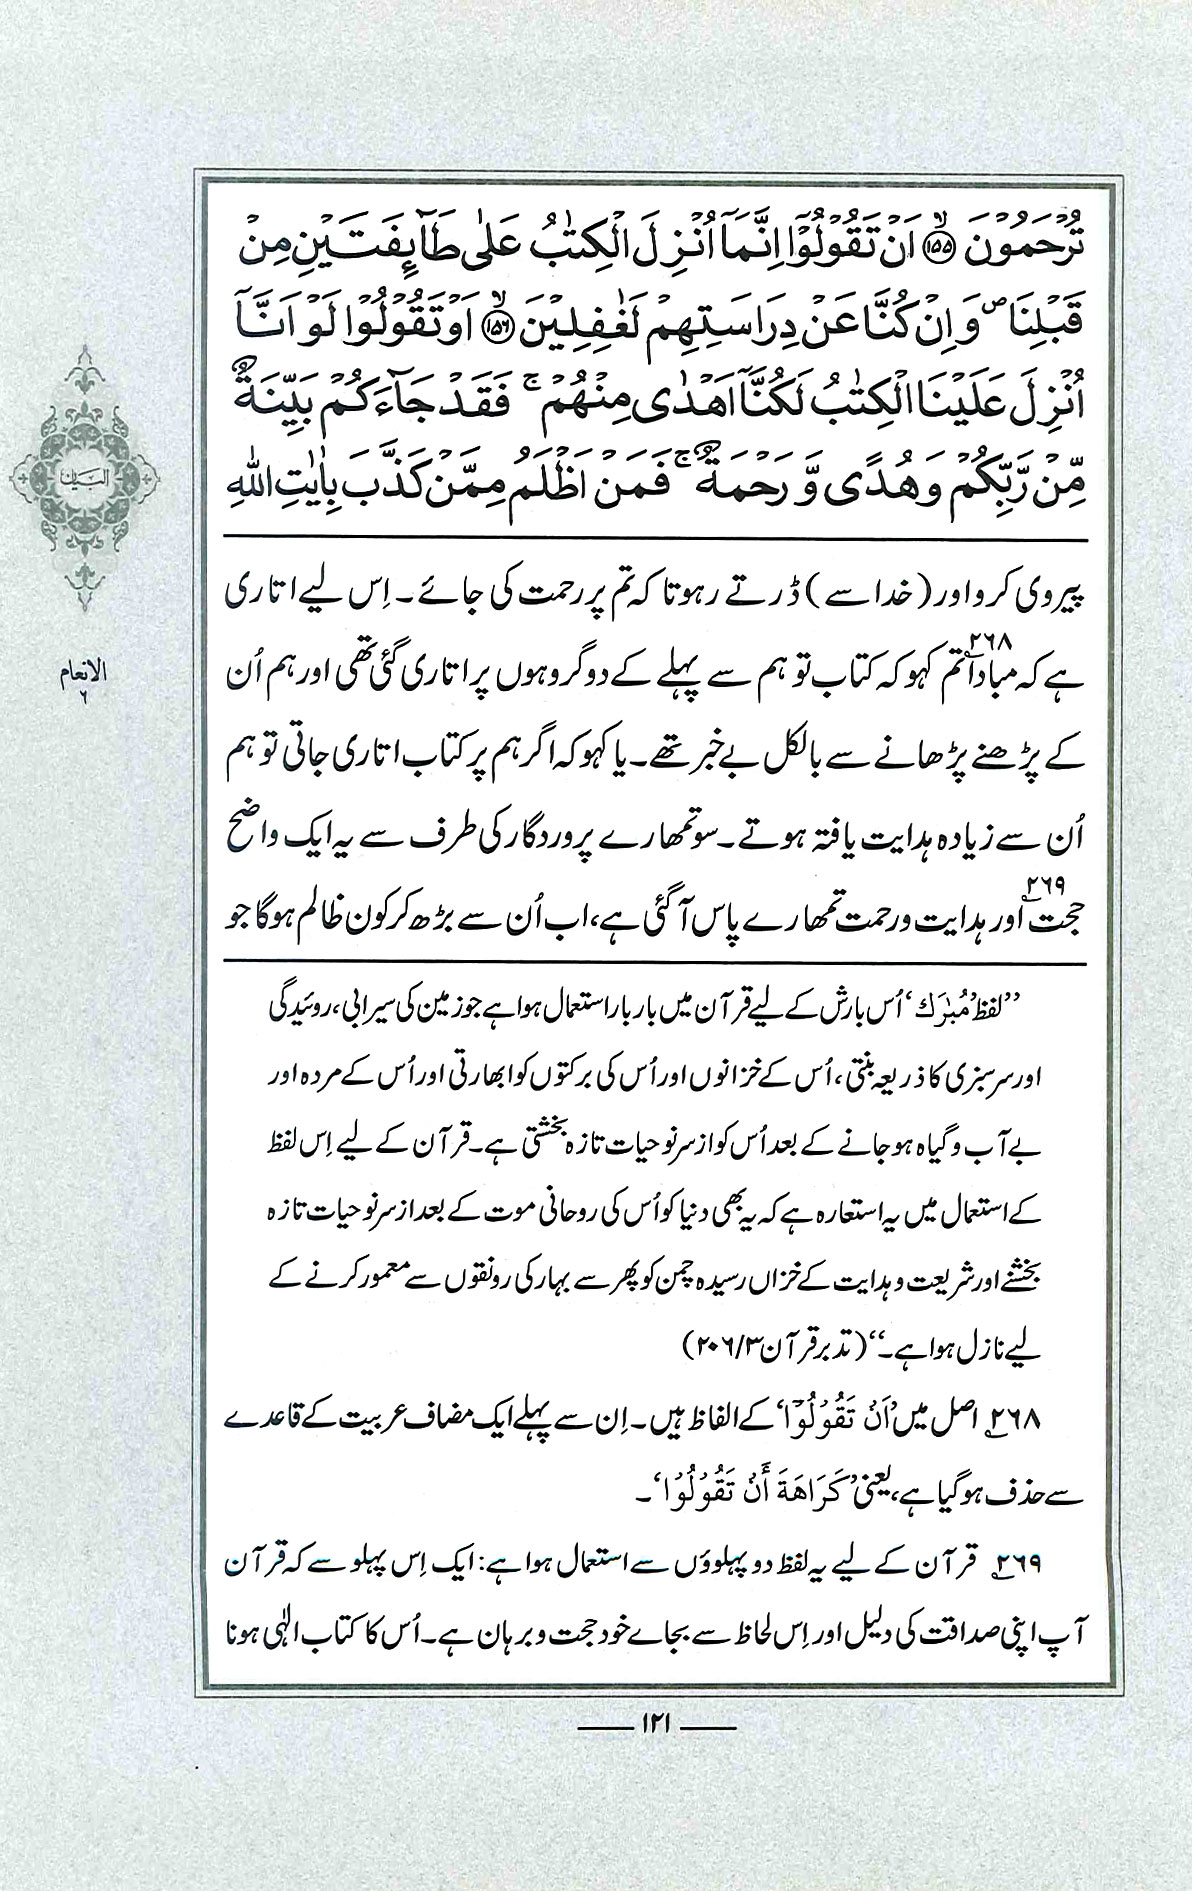 تُرۡحَمُوۡنَ ﴿۱۵۵﴾ۙ اَنۡ تَقُوۡلُوۡۤا اِنَّمَاۤ اُنۡزِلَ الۡکِتٰبُ عَلٰی طَآئِفَتَیۡنِ مِنۡ
قَبۡلِنَا ۪ وَ اِنۡ کُنَّا عَنۡ دِرَاسَتِہِمۡ لَغٰفِلِیۡنَ ﴿۱۵۶﴾ۙ اَوۡ تَقُوۡلُوۡا لَوۡ اَنَّاۤ
اُنۡزِلَ عَلَیۡنَا الۡکِتٰبُ لَکُنَّاۤ اَہۡدٰی مِنۡہُمۡ ۚ فَقَدۡ جَآءَکُمۡ بَیِّنَۃٌ
مِّنۡ رَّبِّکُمۡ وَ ہُدًی وَّ رَحۡمَۃٌ ۚ فَمَنۡ اَظۡلَمُ مِمَّنۡ کَذَّبَ بِاٰیٰتِ اللّٰہِ
البیان
الانعام
۶
پیروی کرو اور (خدا سے) ڈرتے رہو تاکہ تم پر رحمت کی جائے۔ اِس لیے اتاری
ہے کہ مبادا۲۶۸ تم کہو کہ کتاب تو ہم سے پہلے کے دو گروہوں پر اتاری گئی تھی اور ہم اُن
کے پڑھنے پڑھانے سے بالکل بے خبر تھے۔ یا کہو کہ اگر ہم پر کتاب اتاری جاتی تو ہم
اُن سے زیادہ ہدایت یافتہ ہوتے۔ سو تمھارے پروردگار کی طرف سے یہ ایک واضح
حجت۲۶۹ اور ہدایت و رحمت تمھارے پاس آ گئی ہے، اب اُن سے بڑھ کر کون ظالم ہوگا جو
’’لفظ ’مُبٰرَك‘ اُس بارش کے لیے قرآن میں بار بار استعمال ہوا ہے جو زمین کی سیرابی، روئیدگی
اور سرسبزی کا ذریعہ بنتی، اُس کے خزانوں اور اُس کی برکتوں کو ابھارتی اور اُس کے مردہ اور
بے آب و گیاہ ہو جانے کے بعد اُس کو از سر نو حیات تازہ بخشتی ہے۔ قرآن کے لیے اِس لفظ
کے استعمال میں یہ استعارہ ہے کہ یہ بھی دنیا کو اُس کی روحانی موت کے بعد از سر نو حیات تازہ
بخشنے اور شریعت و ہدایت کے خزاں رسیدہ چمن کو پھر سے بہار کی رونقوں سے معمور کرنے کے
لیے نازل ہوا ہے۔‘‘ (تدبر قرآن ۲۰۶/۳)
۲۶۸؂ اصل میں ’اَنۡ تَقُوۡلُوۡۤا‘ کے الفاظ ہیں۔ اِن سے پہلے ایک مضاف عربیت کے قاعدے
سے حذف ہو گیا ہے، یعنی ’کَرَاھَةَ أَنۡ تَقُوۡلُوۡا‘۔
۲۶۹؂ قرآن کے لیے یہ لفظ دو پہلوؤں سے استعمال ہوا ہے: ایک اِس پہلو سے کہ قرآن
آپ اپنی صداقت کی دلیل اور اِس لحاظ سے بجاے خود حجت و برہان ہے۔ اُس کا کتاب الٰہی ہونا
۱۲۱